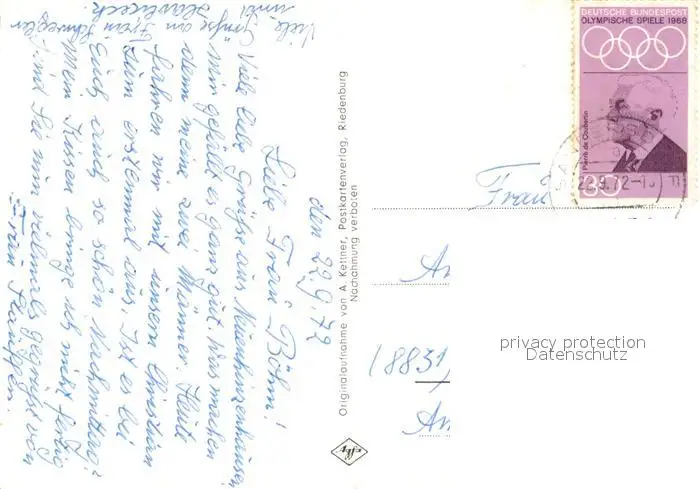 den 22.9.72
Liebe Frau Böhm!
Viele liebe Grüße aus
Mir gefällt es ganz gut. Was machen
denn meine zwei Männer. Heute
fahren wir mit unserm Christian
zum erstenmal aus. Ist es bei
Euch auch so schön Nachmittags?
Mein Kissen bringe ich nicht fertig
sind Sie nun vielmals gegrüßt von
Frau
Viele Grüße an Frau
und
Originalaufnahme von A. Kettner, Postkartenverlag, Riedenburg
Nachahmung verboten
Agfa
DEUTSCHE BUNDESPOST
OLYMPISCHE SPIELE 1968
Pierre de Coubertin
30
Frau
An
(8831)
An
privacy protection
Datenschutz